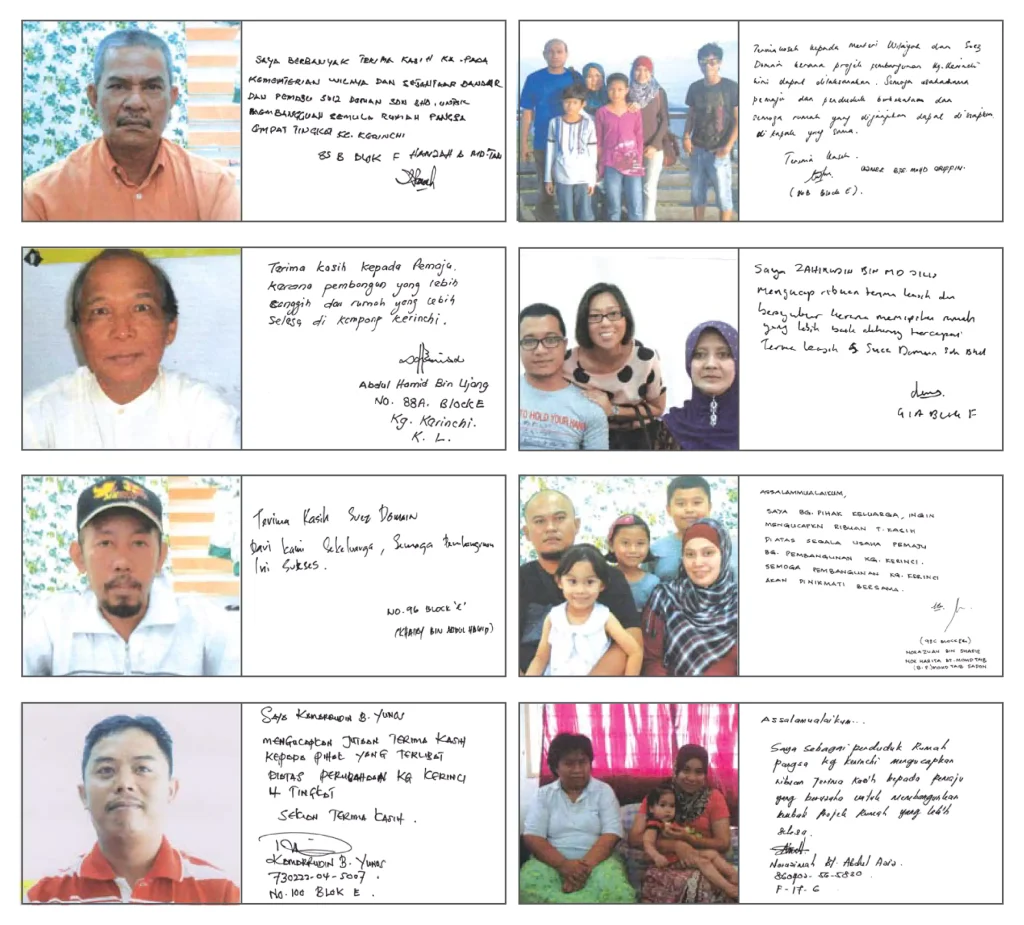 SAYA BERBANYAK TERIMA KASIH KE-PADA
KEMENTERIAN WILAYA DAN SEJAHTRAR BANDAR
DAN PEMAJU SUIZ DOMAN SDN BHD, UNTUK
PEMBANGUNAN SEMULA RUMAH PANGSA
EMPAT TINGKA KG. KERINCHI
85 B BLOK F HAMZAH B MD. TAN
Terima kasih kepada menteri Wilayah dan Suez
Domain kerana projek pembangunan Kg. Kerinchi
kini dapat dilaksanakan. Semoga usahasama
pemaju dan penduduk berkekalan dan
semoga rumah yang dijanjikan dapat disiapkan
di tapak yang sama.
Terima Kasih.
(Block E).
Terima kasih kepada Pemaju.
Karana pembangan yang lebih
canggih dan rumah yang lebih
selesa di kampong kerinchi.
Abdul Hamid Bin Ujang
NO. 88A. Block E
Kg. Karinchi.
K. L.
Saya ZAHIRUDIN BIN MD
mengucap ribuan terima kasih dan
bersyukur kerana memiliki rumah
yang lebih baik
Terima kasih Suez Domain Sdn Bhd
91A BLOK F
Terima Kasih Suez Domain
Dari kami Sekeluarga, Semoga Pembangunan
Ini Sukses.
NO. 96 BLOCK 'E'
(KHAIRY BIN ABDUL HAMID)
ASSALAMMUALAIKUM,
SAYA BG. PIHAK KELUARGA, INGIN
MENGUCAPKN RIBUAN T. KASIH
DIATAS SEGALA USAHA PEMAJU
BG. PEMBANGUNAN KG. KERINCI.
SEMOGA PEMBANGUNAN KG. KERINCI
AKAN DINIKMATI BERSAMA.
NORAZUAN BIN SHAFIE
NOR HASITA BT. MOHD TAIB
(B.P) MOHD TAIB SADON
SAYA KAMARRUDIN B. YUNUS
MENGUCAPKAN JUTAAN TERIMA KASIH
KEPADA PIHAK YANG TERLIBAT
DIATAS PERUBAHAAN KG KERINCI
4 TINGKAT
SEKIAN TERIMA KASIH.
KAMARRUDIN B. YUNUS
730222-04-5007.
NO. 100 BLOK E.
Assalamualaikum...
Saya sebagai penduduk Rumah
pangsa kg kerinchi mengucapkan
ribuan Terima Kasih kepada pemaju
yang berusaha untuk membangunkan
kembali Projek Rumah yang lebih
selesa.
Norazimah Bt. Abdul Aziz.
860902-56-5820
F-17-6